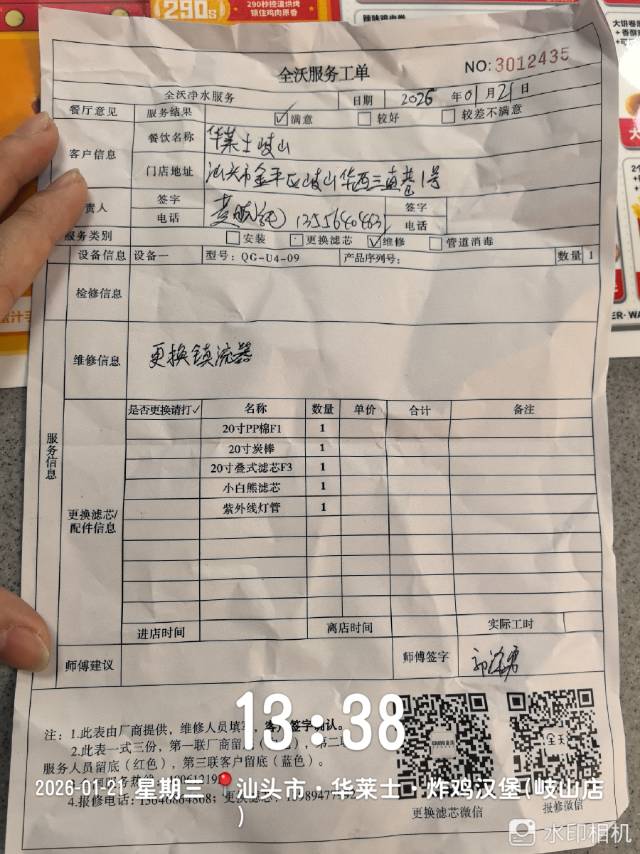 290s
290秒控温烘烤
锁住鸡肉原香
全沃服务工单
NO:3012435
全沃净水服务 日期 2026 年 01 月 21 日
餐厅意见 服务结果 ☑满意 □较好 □较差不满意
客户信息 餐饮名称 华莱士岐山
门店地址 汕头市金平区岐山华西三直巷1号
责人 签字 签字
电话 电话
服务类别 □安装 □更换滤芯 ☑维修 □管道消毒
设备信息 设备一 型号:QG-U4-09 产品序列号: 数量 1
检修信息
维修信息 更换镇流器
服务信息
是否更换请打✓ 名称 数量 单价 合计 备注
20寸PP棉F1 1
20寸炭棒 1
20寸叠式滤芯F3 1
小白熊滤芯 1
紫外线灯管 1
更换滤芯/配件信息
进店时间 离店时间 实际工时
师傅建议 师傅签字
注:1.此表由厂商提供,维修人员填写,客户签字确认。
2.此表一式三份,第一联厂商留底
服务人员留底(红色),第三联客户留底(蓝色)。
4.报修电话:
更换滤芯微信
报修微信
13:38
2026-01-21 星期三 汕头市·华莱士·炸鸡汉堡(岐山店)
水印相机